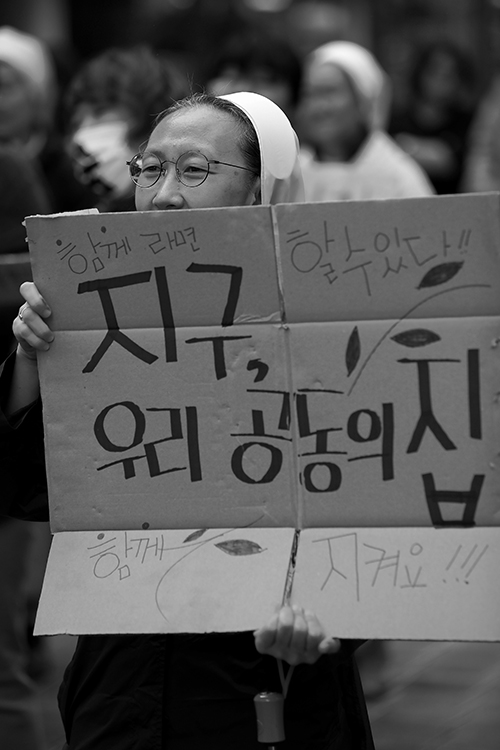 함께 라면 할 수 있다!!
지구,
우리 공동의 집
함께 지켜요!!!